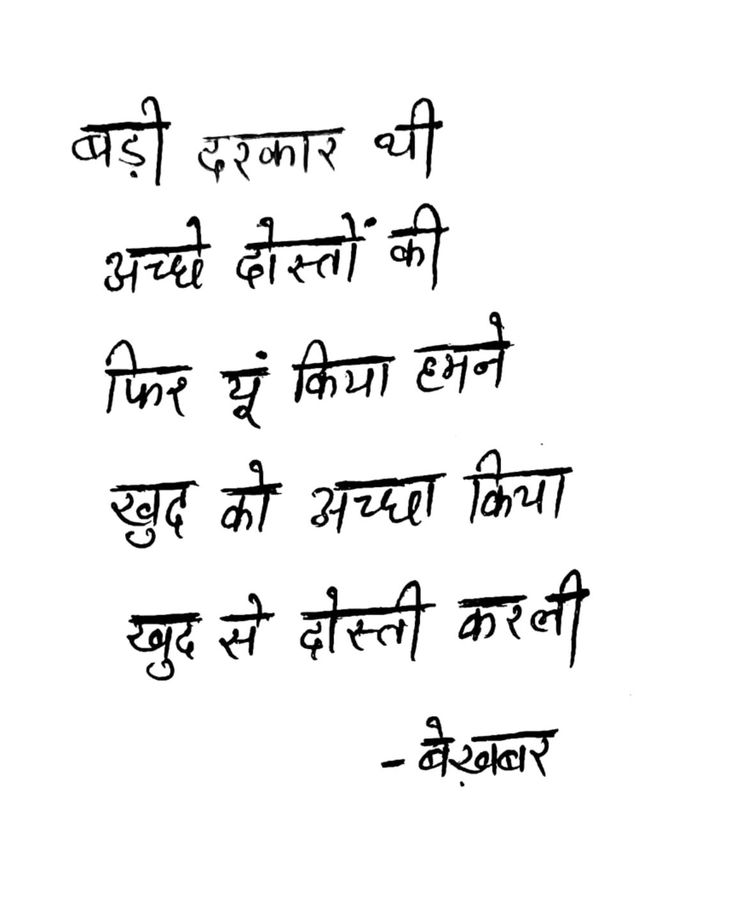 बड़ी दरकार थी
अच्छे दोस्तों की
फिर यूं किया हमने
खुद को अच्छा किया
खुद से दोस्ती करली
- बेख़बर